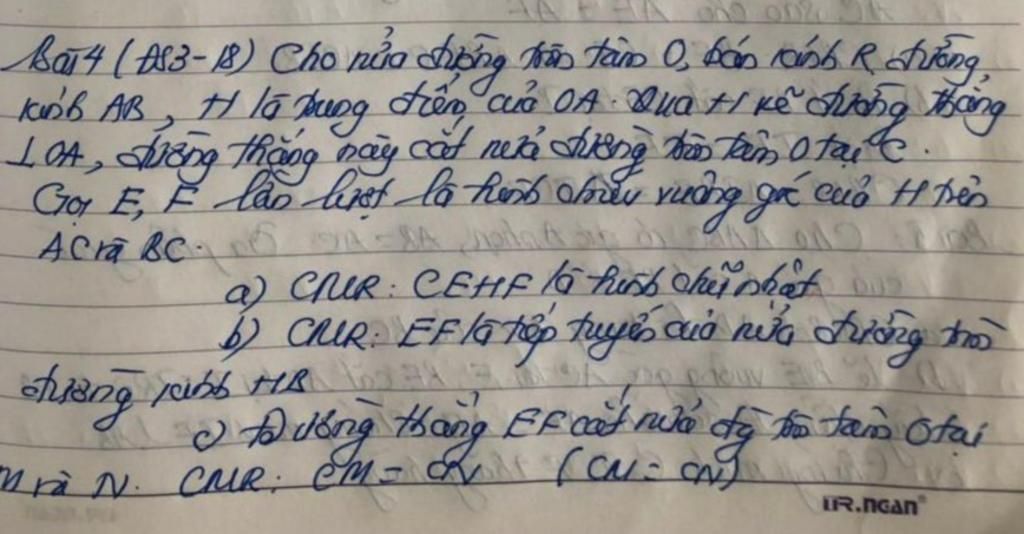 Bài 4 (ĐS3-18) Cho nửa đường tròn tâm O, bán kính R đường
kính AB, H là trung điểm của OA. Qua H kẻ đường thẳng
⊥OA, đường thẳng này cắt nửa đường tròn tâm O tại C.
Gọi E, F lần lượt là hình chiếu vuông góc của H trên
AC và BC.
a) CMR: CEHF là hình chữ nhật
b) CMR: EF là tiếp tuyến của nửa đường tròn
đường kính HB
c) Đường thẳng EF cắt nửa đg tròn tâm O tại
M và N. CMR: CM = CN (CM = CN)
UR.nGan